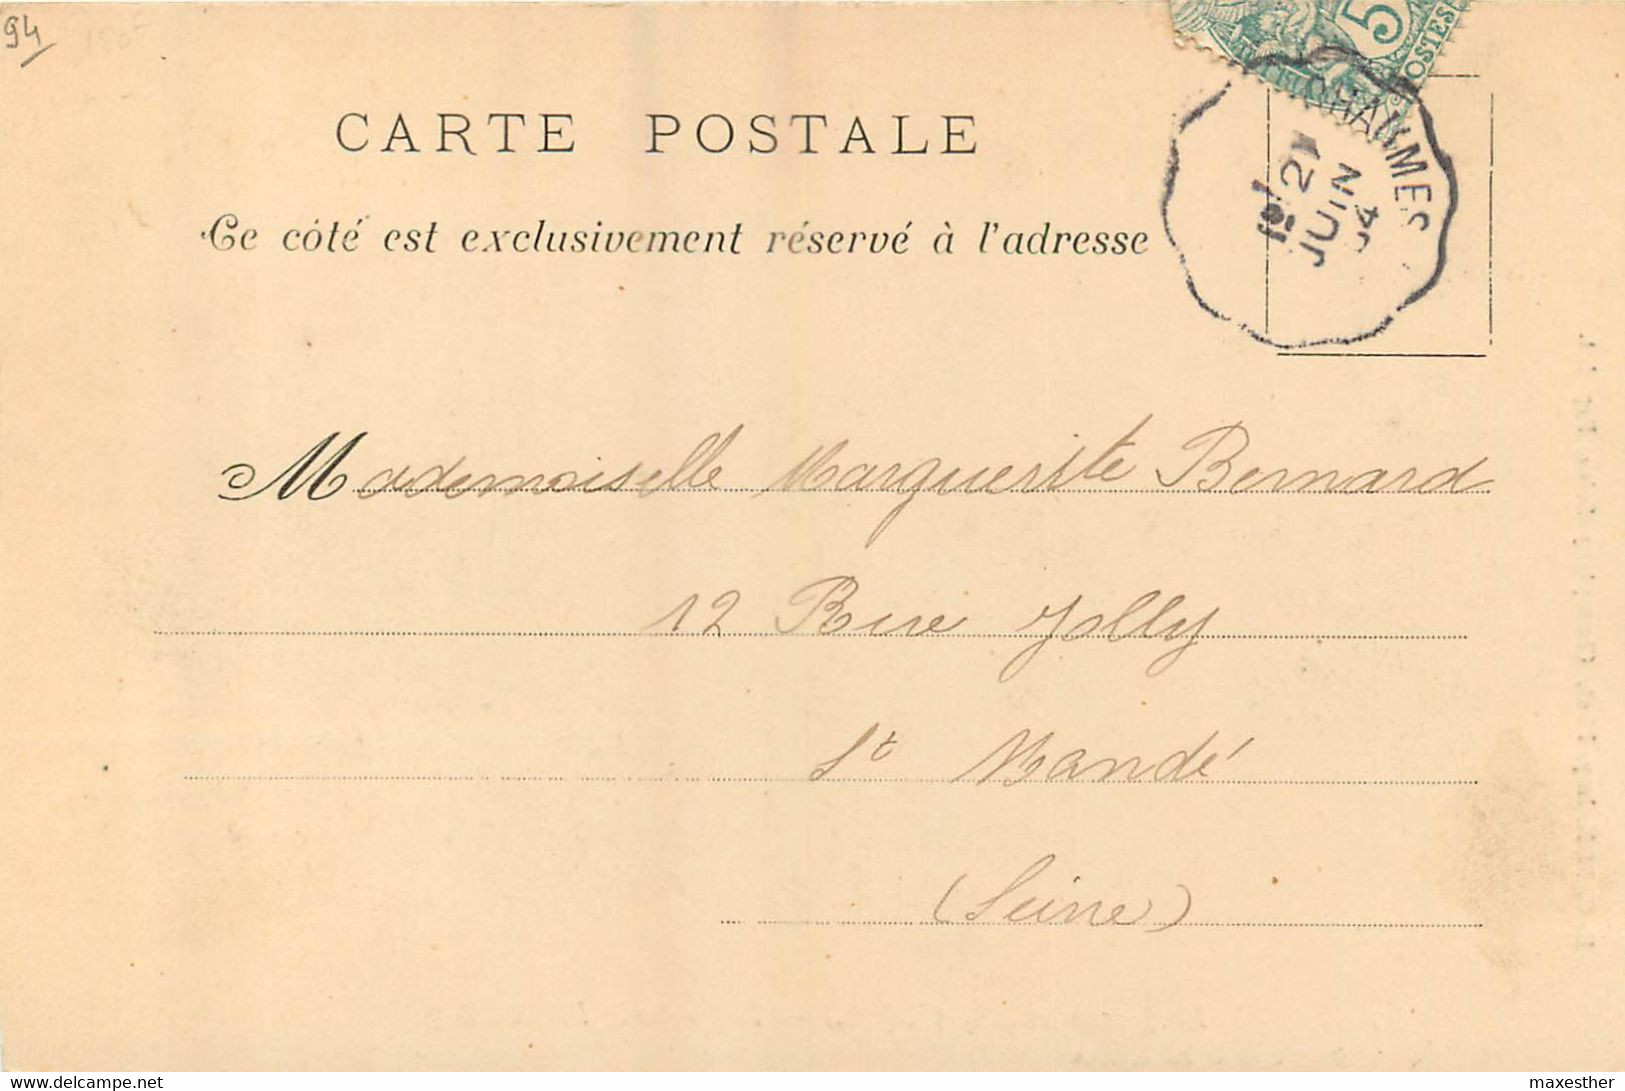 94
CARTE POSTALE
Ce côté est exclusivement réservé à l'adresse
5
POSTES
21
JUIN
Mademoiselle Marguerite Bernard
12 Rue Jolly
St Mandé
(Seine)
www.delcampe.net
maxesther